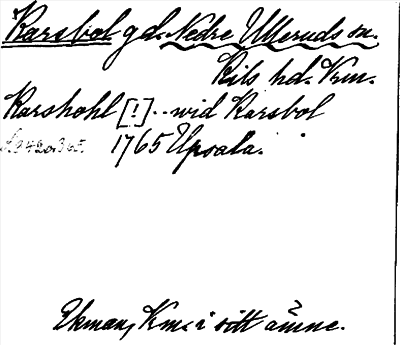 Karsbol gd. Nedre Ulleruds sn.
Kils hd. Vrm.
Karshohl [!].. wid Karsbol
1765 Upsala.
Ekman, Vrm. i sitt ämne.